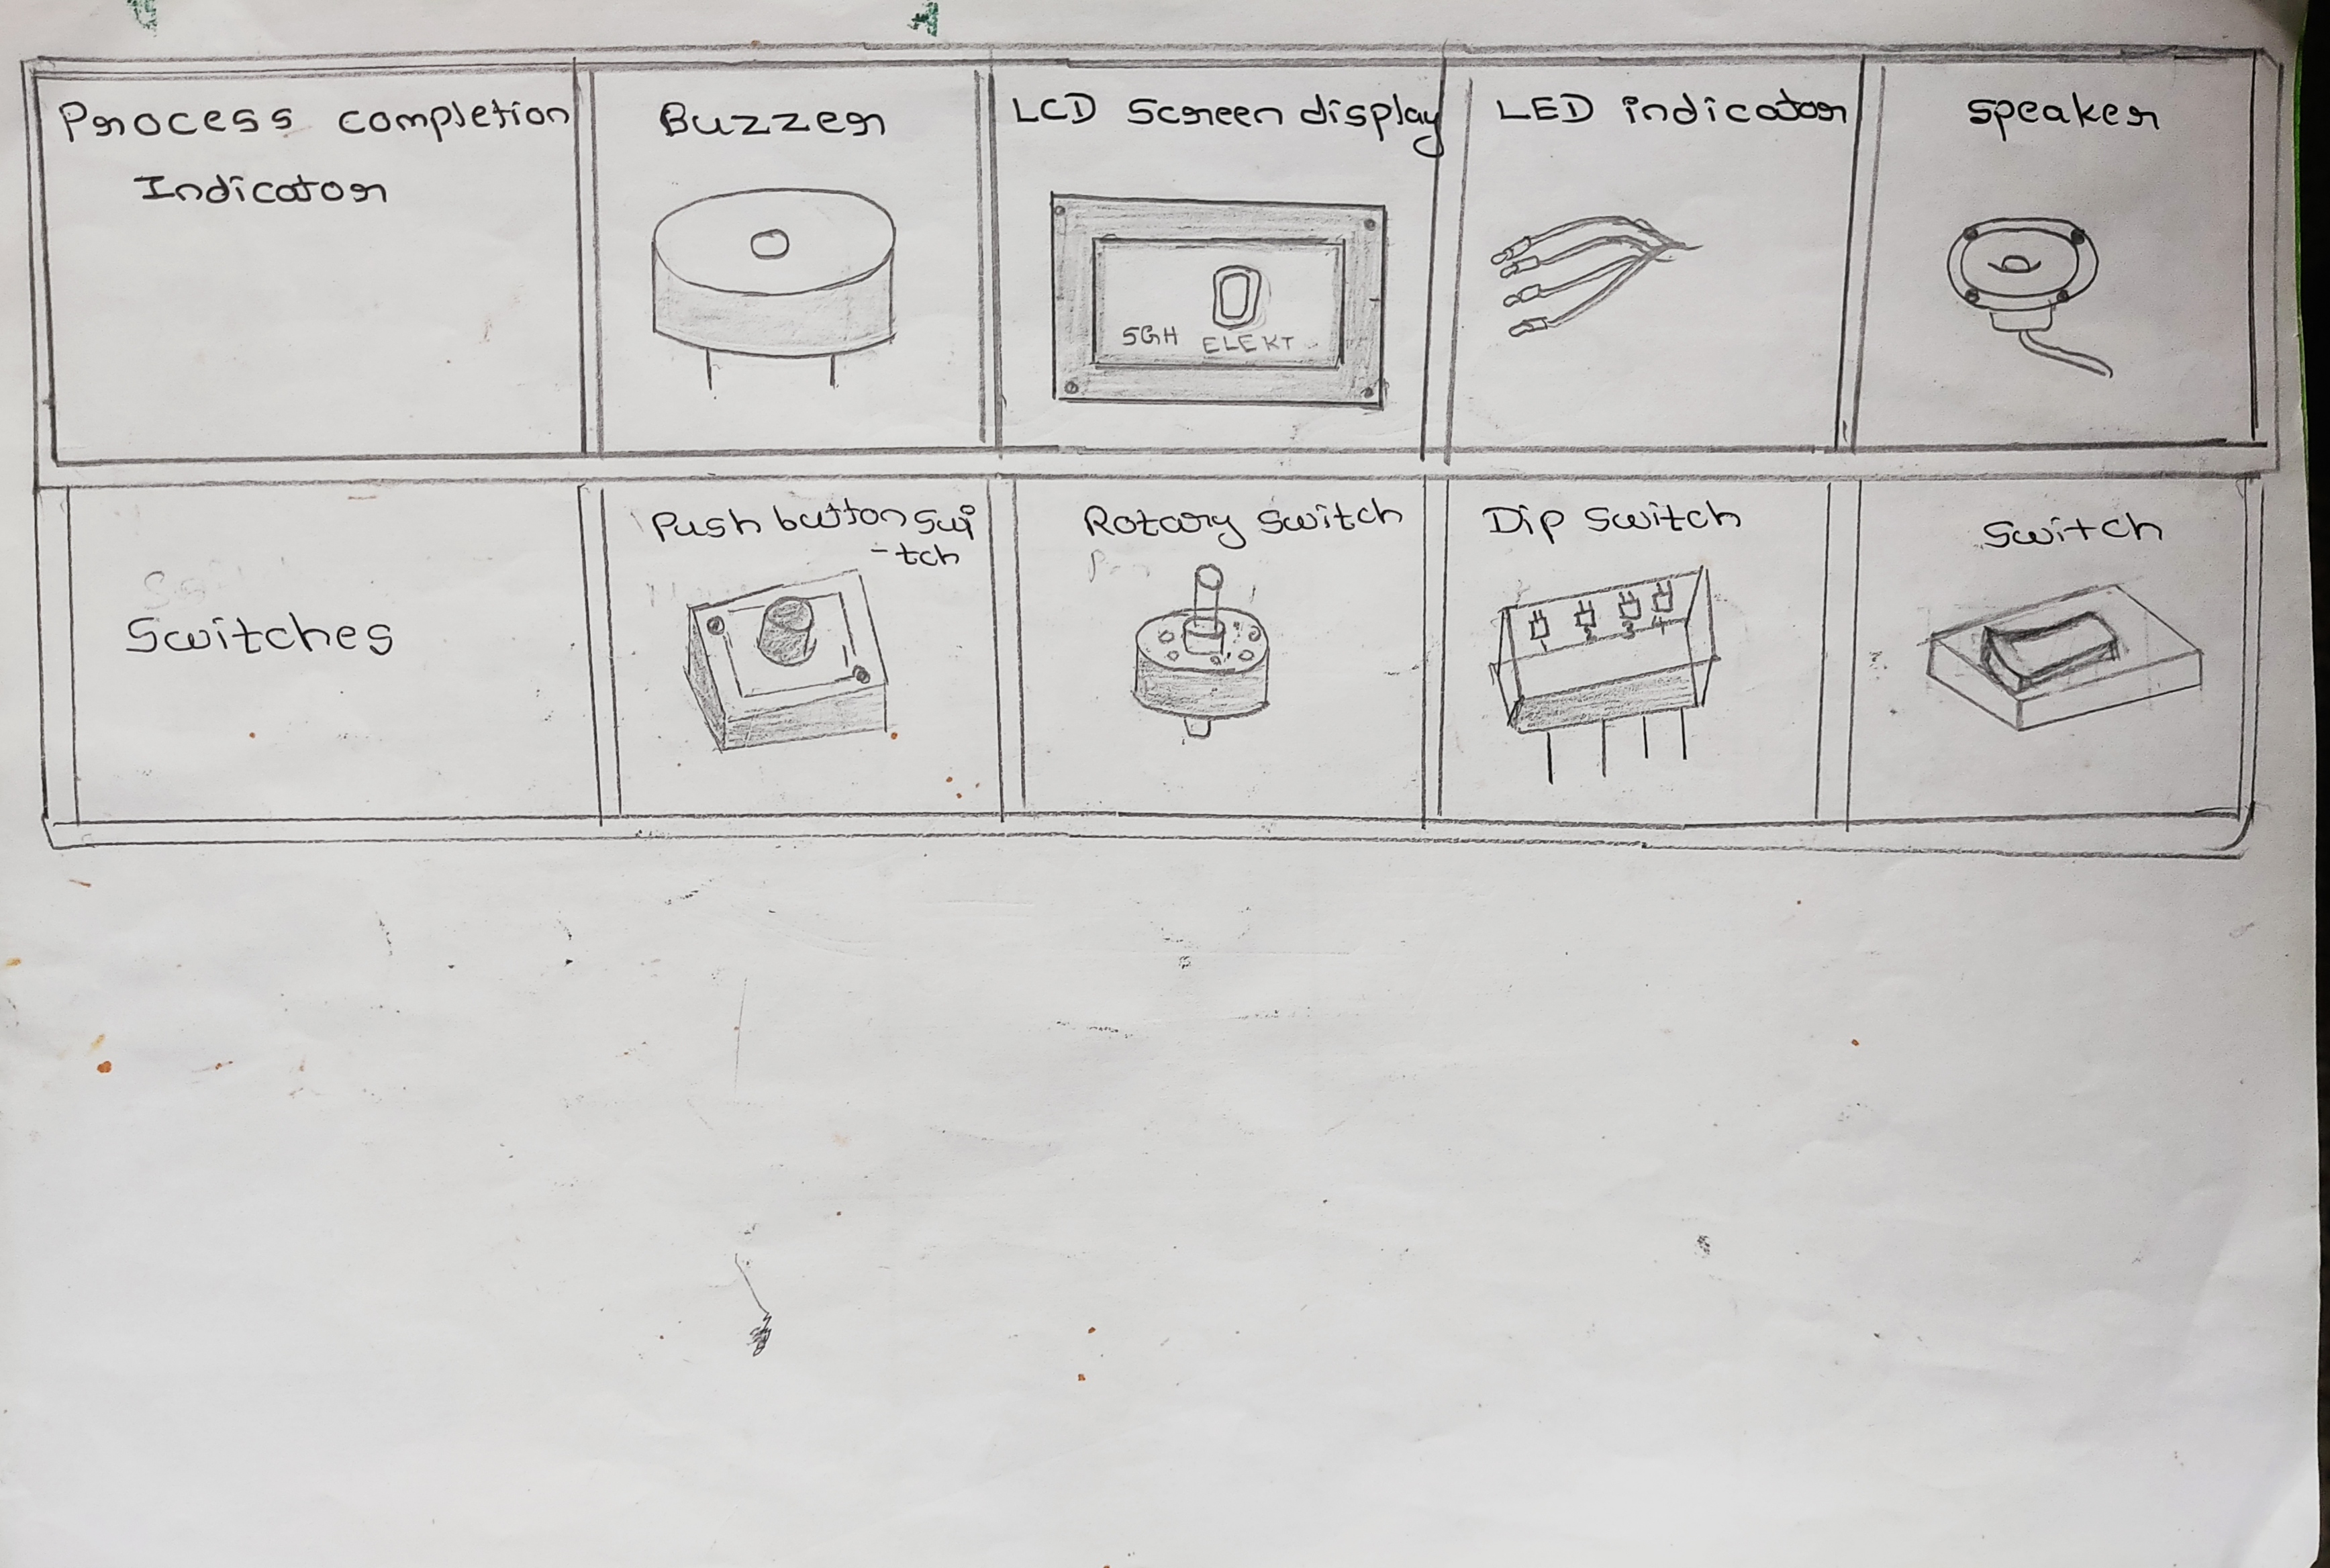 Process completion
Indicator
Buzzer
LCD Screen display
LED indicator
speaker
SGH ELEKT
Switches
Push button swi
-tch
Rotary switch
Dip switch
1 2 3 4
Switch